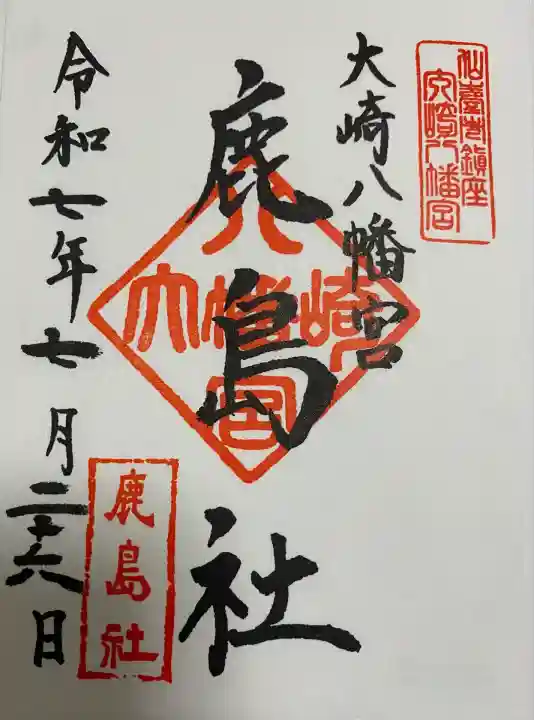 仙臺市鎮座
大崎八幡宮
大崎八幡宮
鹿島社
大崎八幡宮
令和七年七月二十六日
鹿島社